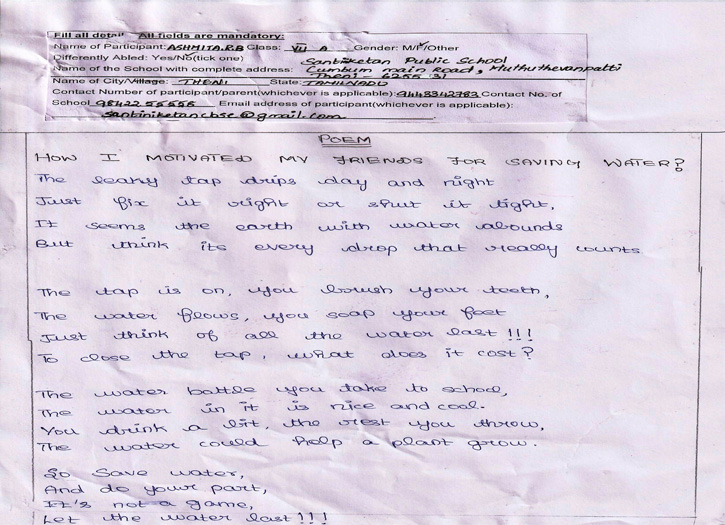 Fill all detail All fields are mandatory:
Name of Participant: ASHMITA.R.B Class: VII A Gender: M/F/Other
Differently Abled: Yes/No(tick one) Santiketan Public School
Name of the School with complete address: Cumbum main Road, Muthuthevanpatti
Theni 6255 31
Name of City/Village: THENI State: TAMILNADU
Contact Number of participant/parent(whichever is applicable): 9443342783 Contact No. of
School 98422 55555 Email address of participant(whichever is applicable):
santiniketancbse@gmail.com
POEM
HOW I MOTIVATED MY FRIENDS FOR SAVING WATER?
The leaky tap drips day and night
Just fix it right or shut it tight,
It seems the earth with water abounds
But think its every drop that really counts
The tap is on, you brush your teeth,
The water flows, you soap your feet
Just think of all the water last !!!
To close the tap, what does it cost?
The water bottle you take to school,
The water in it is nice and cool.
You drink a bit, the rest you throw,
The water could help a plant grow.
So Save water,
And do your part,
It's not a game,
Let the water last!!!